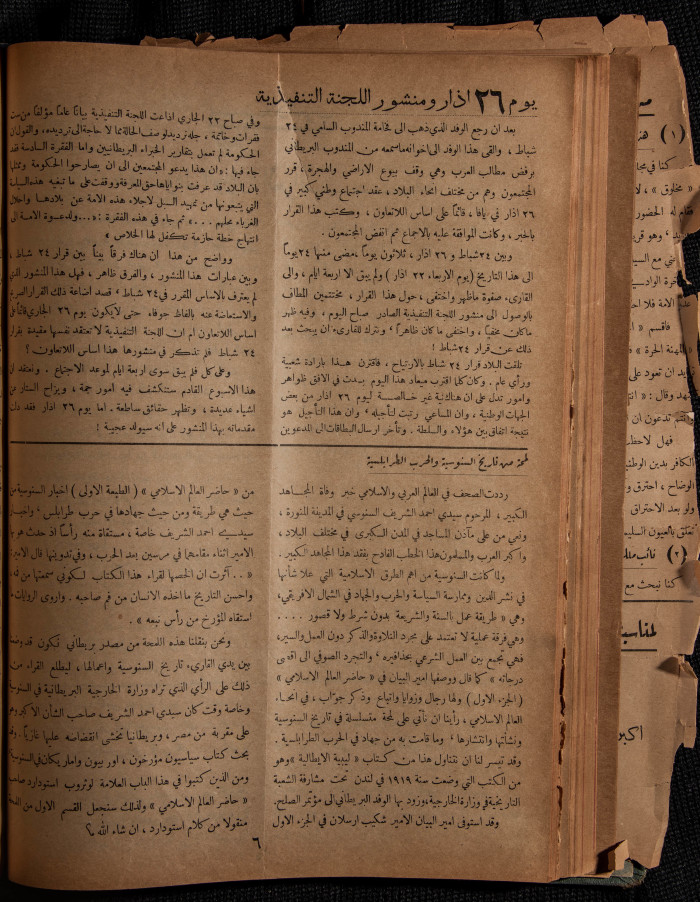 يوم ٢٦ اذار ومنشور اللجنة التنفيذية
بعد ان رجع الوفد الذي ذهب الى فخامة المندوب السامي في ٢٤
شباط، والقى هذا الوفد الى اخوانه ماسمعه من المندوب البريطاني
برفض مطالب العرب وهي وقف بيوع الاراضي والهجرة، قرر
المجتمعون وهم من مختلف انحاء البلاد، عقد اجتماع وطني كبير في
٢٦ اذار في يافا، قائماً على اساس اللاتعاون، وكتب هذا القرار
بالحبر، وكانت الموافقة عليه بالاجماع ثم انفض المجتمعون.
وبين ٢٤ شباط و ٢٦ اذار، ثلاثون يوماً مضى منها ٢٤ يوماً
الى هذا التاريخ (يوم الاربعاء ٢٢ اذار) ولم يبق الا اربعة ايام، والى
القارىء صفوة ماظهر واختفى، حول هذا القرار، مختتمين المطاف
بالوصول الى منشور اللجنة التنفيذية الصادر صباح اليوم، وفيه ظهر
ماكان مخفياً، واختفى ما كان ظاهراً ونترك للقارىء ان يبحث بعد
ذلك عن قرار ٢٤ شباط !
تلقت البلاد قرار ٢٤ شباط بالارتياح، فاقترن هذا بارادة شعبية
ورأي عام. وكان كلما اقترب ميعاد هذا اليوم بدت في الافق ظواهر
وامور تدل على ان هناك نية غير خالصة ليوم ٢٦ اذار من بعض
الجهات الوطنية، وان المساعي رتبت لتأجيله وان هذا التأجيل هو
نتيجة اتفاق بين هؤلاء والسلطة. وتأخر ارسال البطاقات الى المدعوين
وفي صباح ٢٢ الجاري اذاعت اللجنة التنفيذية بياناً عاماً مؤلفاً من ست
فقرات وخاتمة، جله ترديد لوصف الحالة مما لا حاجة الى ترديده، والقول ان
الحكومة لم تعمل بتقارير الخبراء البريطانيين واما الفقرة السادسة فقد
جاء فيها: «ان هذا يدعو المجتمعين الى ان يصارحوا الحكومة وممثلها
بان البلاد قد عرفت بنواياها حق المعرفة ووقفت على ما تبغيه هذه السياسة
التي يتبعونها من تمهيد السبل لاجلاء هذه الامة عن بلادها واحلال
الغرباء محلهم...» ثم جاء في هذه الفقرة: «... ولدعوة الامة الى
انتهاج خطة حازمة تكفل لها الخلاص»
وواضح من هذا ان هناك فرقاً بيناً بين قرار ٢٤ شباط،
وبين عبارات هذا المنشور، والفرق ظاهر، فهل هذا المنشور الذي
لم يعترف بالاساس المقرر في ٢٤ شباط قصد اضاعة ذلك القرار الصريح
والاستعاضة عنه بالفاظ جوفاء حتى لايكون يوم ٢٦ الجاري قائماً على
اساس اللاتعاون ام ان اللجنة التنفيذية لا تعتقد نفسها مقيدة بقرار
٢٤ شباط فلم تذكر في منشورها هذا اساس اللاتعاون؟
وعلى كل فلم يبق سوى اربعة ايام لموعد الاجتماع. ونعتقد ان
هذا الاسبوع القادم ستنكشف فيه امور جمة، ويزاح الستار عن
اشياء عديدة، وتظهر حقائق ساطعة. اما يوم ٢٦ اذار فقد دلت
مقدماته بهذا المنشور على انه سيولد عجيبة !
لمحة من تاريخ السنوسية والحرب الطرابلسية
رددت الصحف في العالم العربي والاسلامي خبر وفاة المجاهد
الكبير، المرحوم سيدي احمد الشريف السنوسي في المدينة المنورة،
ونعي من على مآذن المساجد في المدن الكبرى في مختلف البلاد،
واكبر العرب والمسلمون هذا الخطب الفادح بفقد هذا المجاهد الكبير.
ولما كانت السنوسية من اهم الطرق الاسلامية التي علا شأنها
في نشر الدين وممارسة السياسة والحرب والجهاد في الشمال الافريقي،
وهي «طريقة عمل بالسنة والشريعة بدون شرط ولا قصور ....
وهي فرقة عملية لا تعتمد على مجرد التلاوة والذكر دون العمل والسير،
فهي تجمع بين العمل الشرعي بحذافيره والتجرد الصوفي الى اقصى
درجاته» كما قال ووصفها امير البيان في «حاضر العالم الاسلامي»
(الجزء الاول) ولها رجال وزوايا واتباع وذكر جواب، في انحاء
العالم الاسلامي، رأينا ان نأتي على لمحة متسلسلة في تاريخ السنوسية
ونشأتها وانتشارها وما قامت به من جهاد في الحرب الطرابلسية.
وقد تيسر لنا ان نتناول هذا من كتاب «ليبية الايطالية» وهو
من الكتب التي وضعت سنة ١٩١٩ في لندن تحت مشارفة الشعبة
التاريخية في وزارة الخارجية، وزود بها الوفد البريطاني الى مؤتمر الصلح.
وقد استوفى امير البيان الامير شكيب ارسلان في الجزء الاول
من «حاضر العالم الاسلامي» (الطبعة الاولى) اخبار السنوسية من
حيث هي طريقة ومن حيث جهادها في حرب طرابلس واخبار
سيدي احمد الشريف خاصة، مستقاة منه رأساً اذ حدث هو بها
الامير اثناء مقامهما في مرسين بعد الحرب، وفي تدوينها قال الامير:
«.. آثرت ان الخصها لقراء هذا الكتاب لكوني سمعتها من فمه،
واحسن التاريخ ما اخذه الانسان من فم صاحبه. واروى الروايات ما
استقاه المؤرخ من رأس نبعه».
ونحن بنقلنا هذه اللمحة من مصدر بريطاني نكون قد وضعنا
بين يدي القارىء تاريخ السنوسية واعمالها، ليطلع القراء من
ذلك على الرأي الذي تراه وزارة الخارجية البريطانية في السنوسية
وخاصة وقت كان سيدي احمد الشريف صاحب الشأن الاكبر وهو
على مقربة من مصر، وبريطانيا تخشى انقضاضه عليها غازياً. وقد
بحث كتاب سياسيون مؤرخون، اوربيون وامريكان في السنوسية
ومن الذين كتبوا في هذا الباب العلامة لوثروب استودارد صاحب
«حاضر العالم الاسلامي» ولذلك سنجعل القسم الاول من اللمحة
منقولا من كلام استودارد، ان شاء الله ؟
٦
(١)
كنا في مجا
« مخلوق »، لا
فقام له الحضور
علم الامة فلا
فاقسم « ا
المهنة الحرة »
تريد ان تعود على
فهل لاحظ
الكافر بدين الوطنية
الوضاح، احترق و
ولو بعد الاحتراق
تتعلق بالعيون السليمة
(٢)
كنا نبحث مع
لمناسبة
اكبر